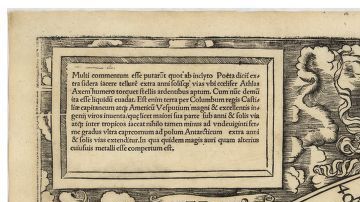 Multi commentum esse putarūt quot ab inclyto Poëta dicif ex
tra sidera iacere tellurē extra anni solisq; vias vbi cœlifer Athlas
Axem humero torquet stellis ardentibus aptum. Cum nūc demū
ita esse liquidū euadat. Est enim terra per Columbum regis Casti
liæ capitaneum atq; Americū Vesputium magni & excellentis in
genij viros inuenta, quę licet maiori sua parte sub anni & solis via
atq; inter tropicos iaceat nihilo tamen minus ad vndeuiginti fer-
me gradus vltra capreornum ad polum Antarcticum extra anni
& solis vias extenditur. In qua quidem magis auri quam alterius
cuiusuis metalli esse compertum est.